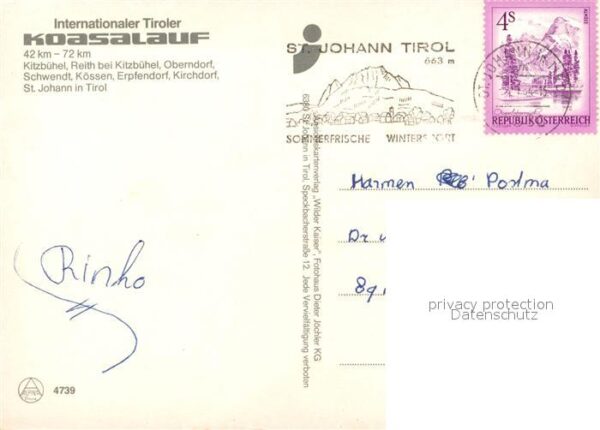 Internationaler Tiroler
KOASALAUF
42 km – 72 km
Kitzbühel, Reith bei Kitzbühel, Oberndorf,
Schwendt, Kössen, Erpfendorf, Kirchdorf,
St. Johann in Tirol
ST. JOHANN TIROL
663 m
SOMMERFRISCHE WINTERSPORT
4S
REPUBLIK ÖSTERREICH
Ansichtskartenverlag „Wilder Kaiser", Fotohaus Dieter Jöchler KG
6380 St. Johann in Tirol, Speckbacherstraße 12. Jede Vervielfältigung verboten
Harmen Postma
Dr
Rinho
privacy protection
Datenschutz
4739